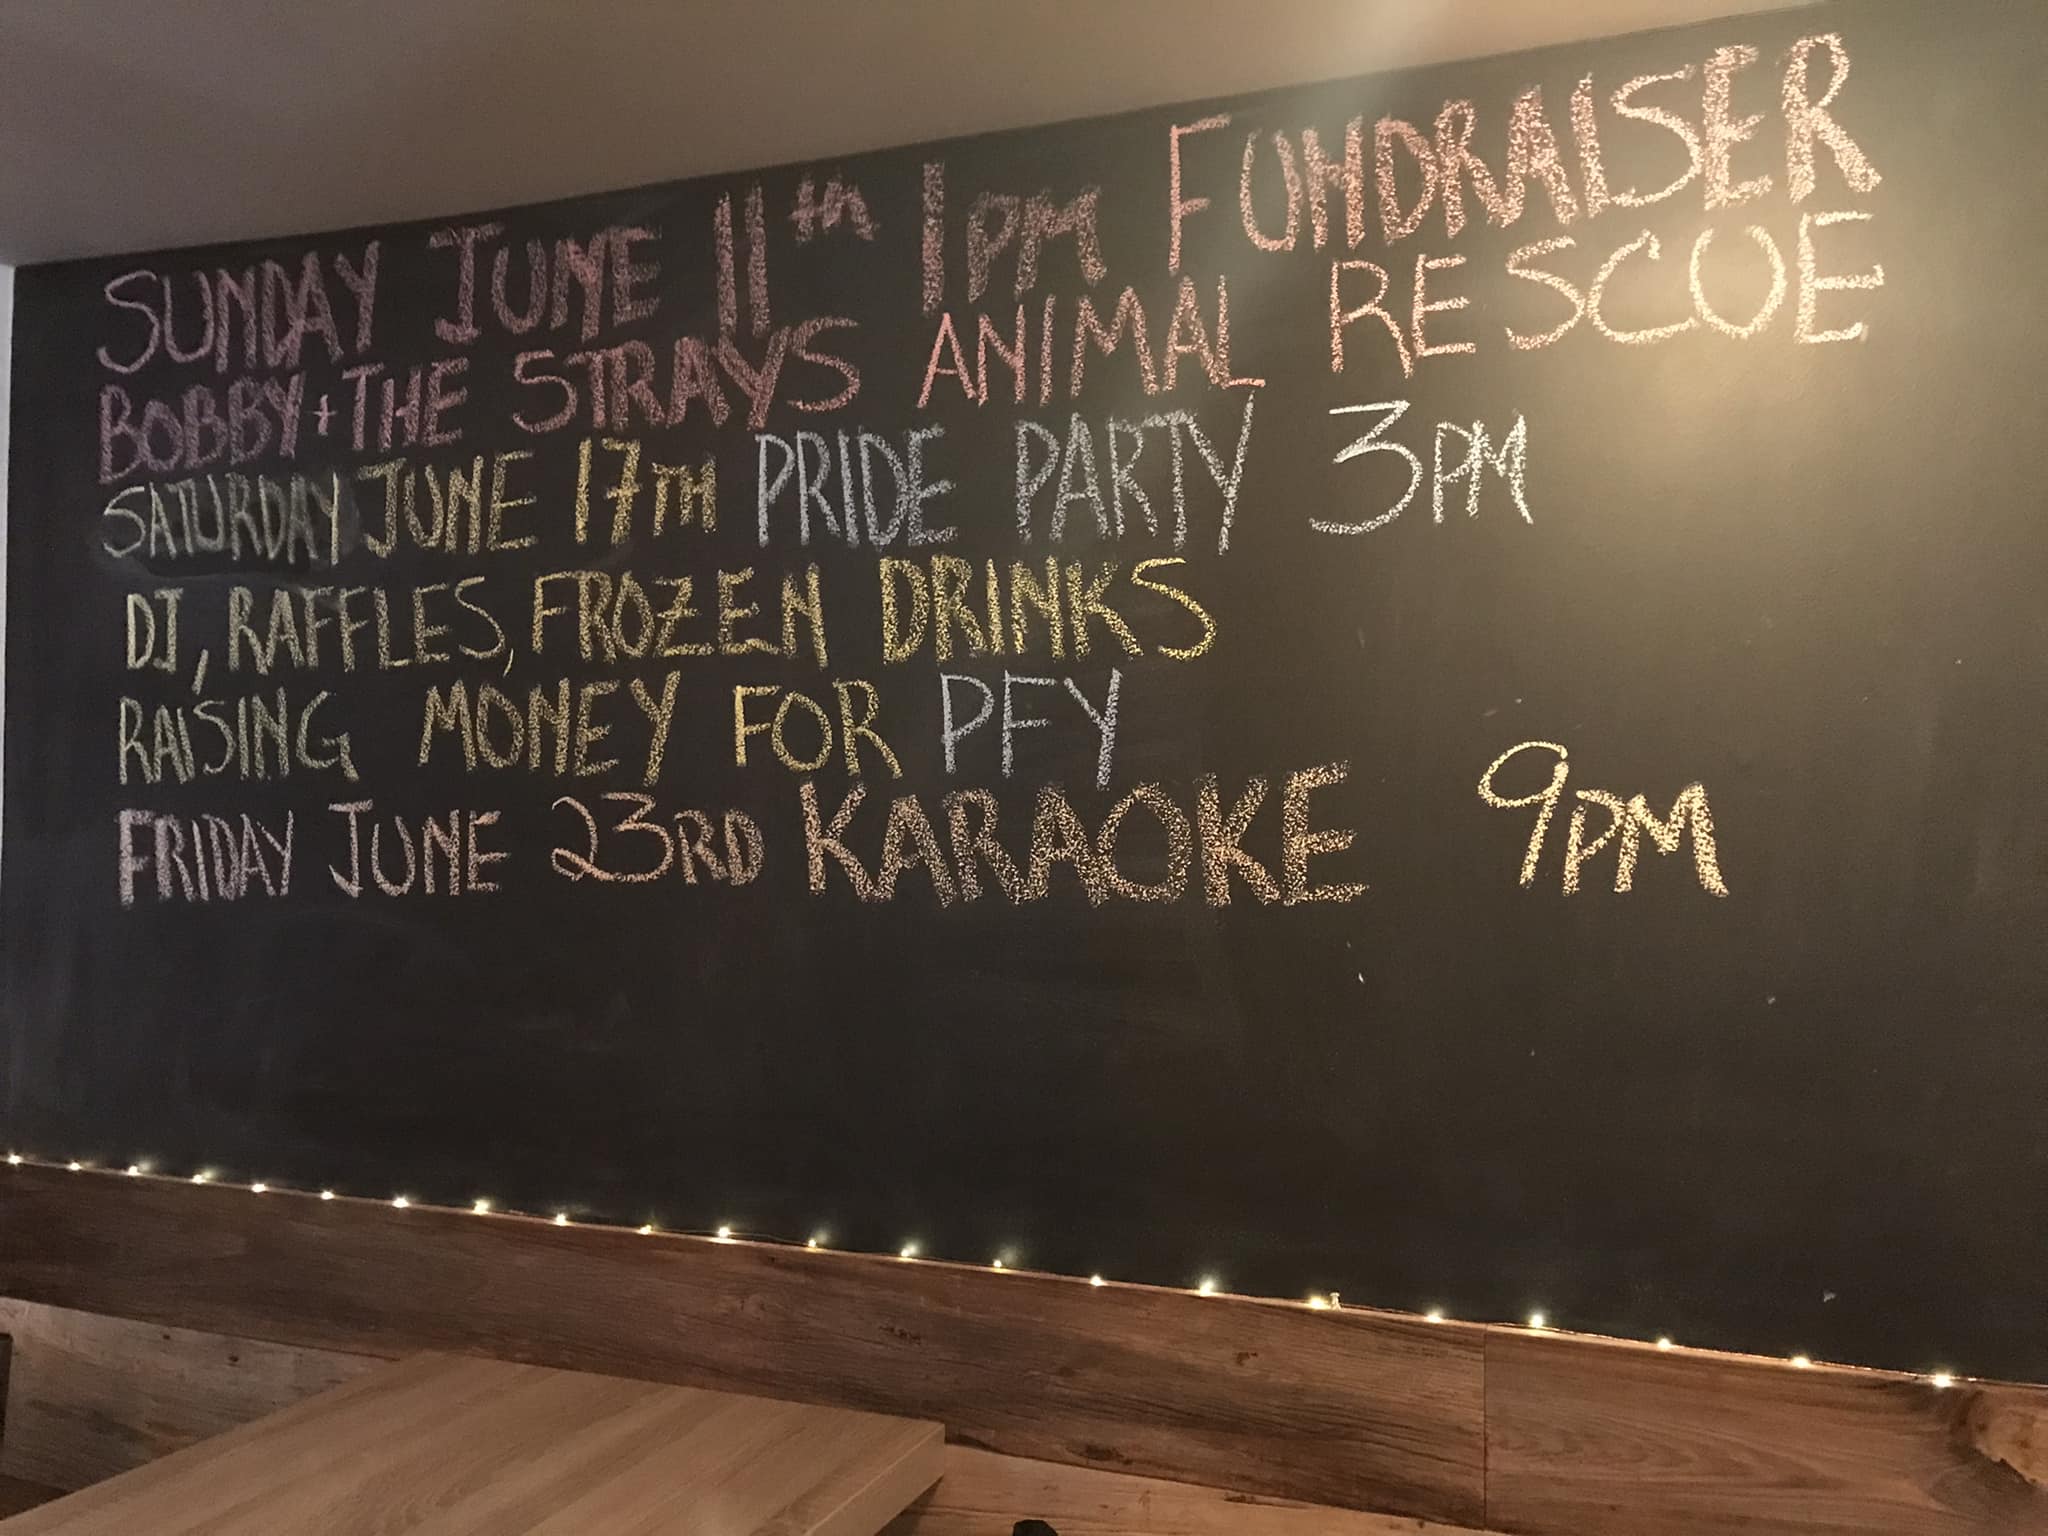 SUNDAY JUNE 11th 1PM FUNDRAISER
BOBBY + THE STRAYS ANIMAL RESCUE
SATURDAY JUNE 17TH PRIDE PARTY 3PM
DJ, RAFFLES, FROZEN DRINKS
RAISING MONEY FOR PFY
FRIDAY JUNE 23RD KARAOKE 9PM